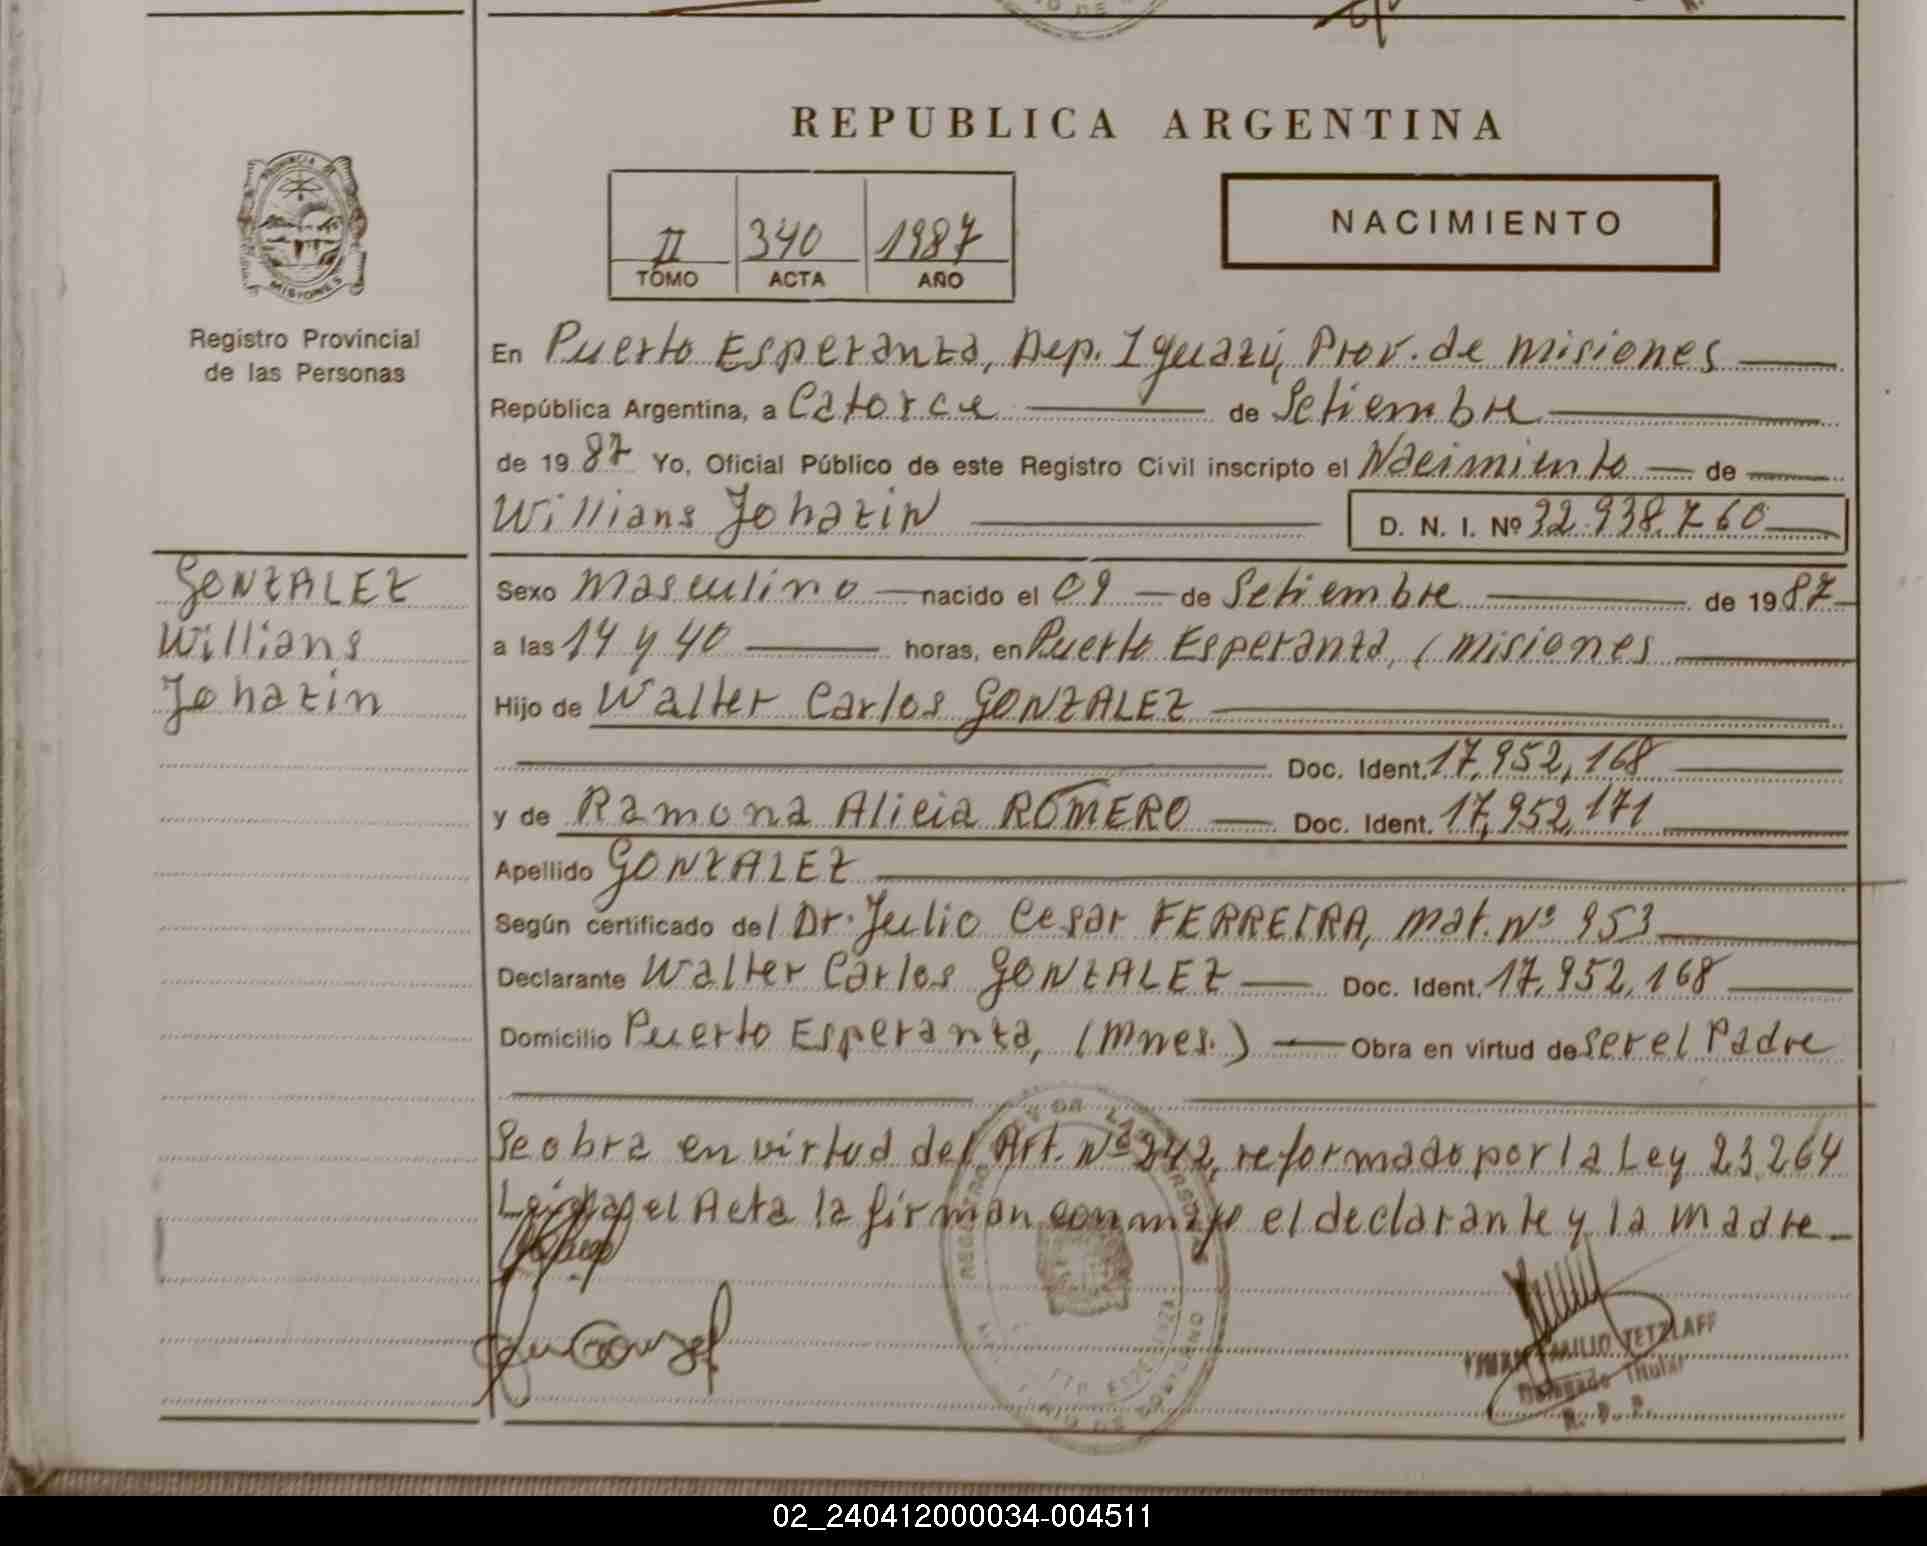 REPUBLICA ARGENTINA
PROVINCIA DE
MISIONES
Registro Provincial
de las Personas
II 340 1987
TOMO ACTA AÑO
NACIMIENTO
En Puerto Esperanza, Dep. Iguazú, Prov. de Misiones
República Argentina, a Catorce de Setiembre
de 1987 Yo, Oficial Público de este Registro Civil inscripto el Nacimiento de
Willians Johazin D. N. I. Nº 32.938.760
GONZALEZ
Willians
Johazin
Sexo Masculino nacido el 09 de Setiembre de 1987
a las 14 y 40 horas, en Puerto Esperanza, (Misiones
Hijo de Walter Carlos GONZALEZ
Doc. Ident. 17,952,168
y de Ramona Alicia ROMERO Doc. Ident. 17,952,171
Apellido GONZALEZ
Según certificado del Dr. Julio Cesar FERREIRA, Mat. Nº 953
Declarante Walter Carlos GONZALEZ Doc. Ident. 17,952,168
Domicilio Puerto Esperanza, (Mnes.) Obra en virtud de ser el Padre
Se obra en virtud del Art. Nº 242, reformado por la Ley 23.264
Leida el Acta la firman conmigo el declarante y la Madre
EMILIO TETZLAFF
Delegado Titular
R. D. P.
02_240412000034-004511